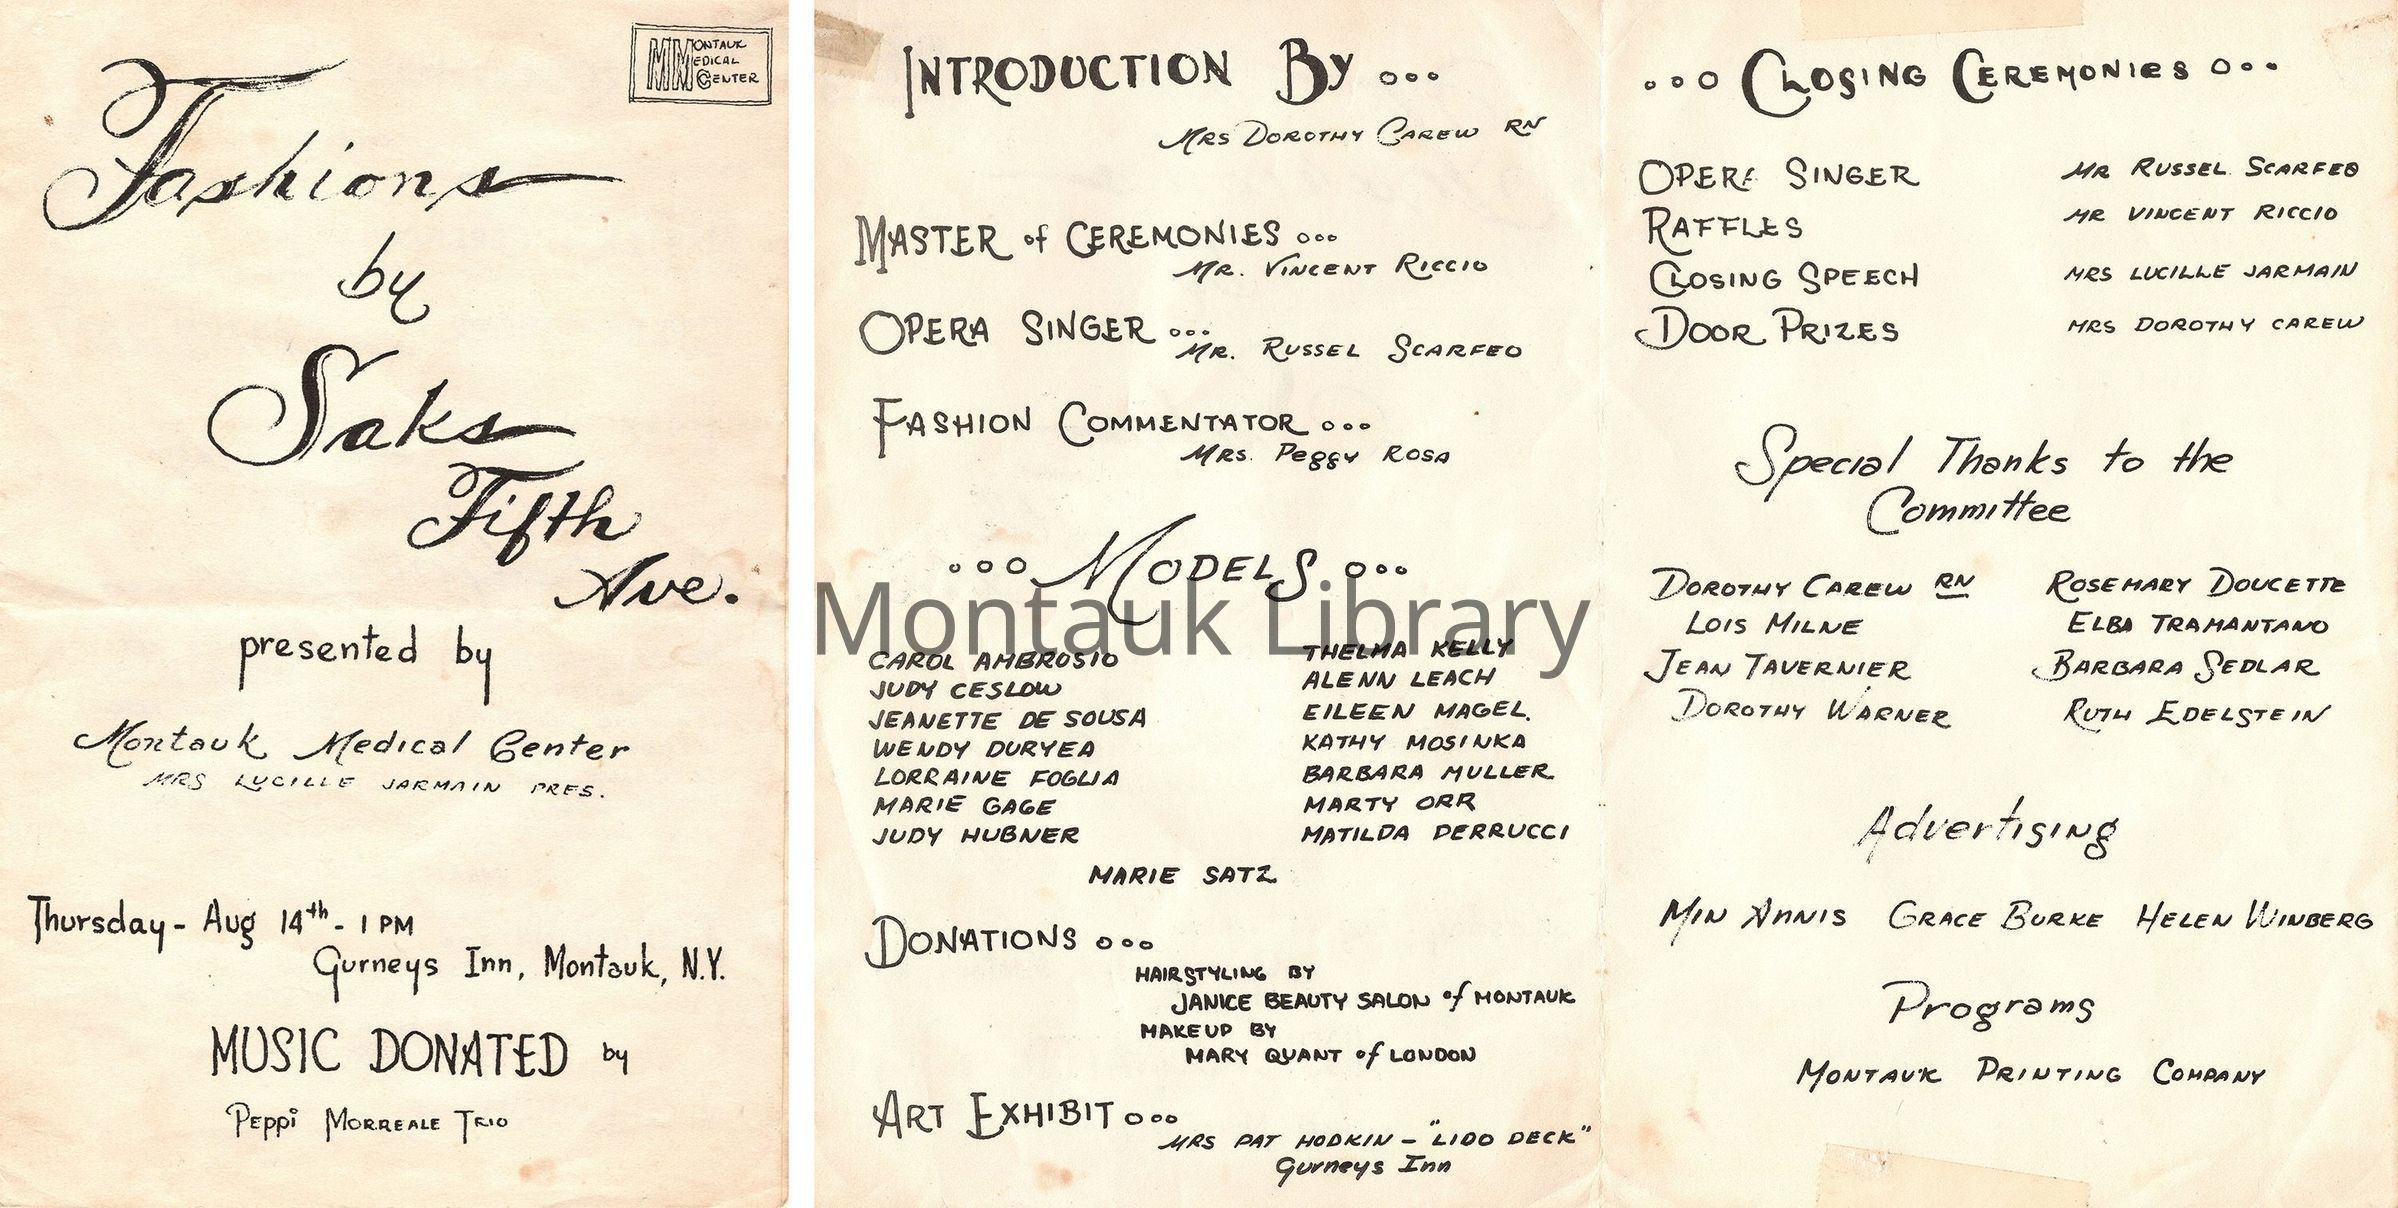 MONTAUK
MEDICAL
CENTER
Fashions
by
Saks
Fifth
Ave.
presented by
Montauk Medical Center
MRS LUCILLE JARMAIN PRES.
Thursday - Aug 14th - 1 PM
Gurneys Inn, Montauk, N.Y.
MUSIC DONATED by
PEPPi MORREALE TRIO
INTRODUCTION BY ...
MRS DOROTHY CAREW RN
MASTER of CEREMONIES ...
MR. VINCENT RICCIO
OPERA SINGER ...
MR. RUSSEL SCARFEO
FASHION COMMENTATOR ...
MRS. Peggy ROSA
... MODELS ...
CAROL AMBROSIO
JUDY CESLOW
JEANETTE DE SOUSA
WENDY DURYEA
LORRAINE FOGLIA
MARIE GAGE
JUDY HUBNER
THELMA KELLY
ALENN LEACH
EILEEN MAGEL.
KATHY MOSINKA
BARBARA MULLER
MARTY ORR
MATILDA DERRUCCI
MARIE SATZ
DONATIONS ...
HAIRSTYLING BY
JANICE BEAUTY SALON of MONTAUK
MAKEUP BY
MARY QUANT of LONDON
ART EXHIBIT ...
MRS PAT HODKIN - "LIDO DECK"
Gurneys Inn
... CLOSING CEREMONIES ...
OPERA SINGER MR RUSSEL SCARFEO
RAFFLES MR VINCENT RICCIO
CLOSING SPEECH MRS LUCILLE JARMAIN
DOOR PRIZES MRS DOROTHY CAREW
Special Thanks to the
Committee
DOROTHY CAREW RN ROSEMARY DOUCETTE
LOIS MILNE ELBA TRAMANTANO
JEAN TAVERNIER BARBARA SEDLAR
DOROTHY WARNER RUTH EDELSTEIN
Advertising
MIN ANNIS GRACE BURKE HELEN WINBERG
Programs
MONTAUK PRINTING COMPANY
Montauk Library